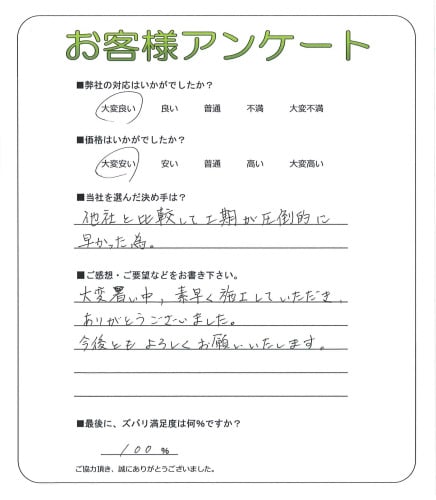 お客様アンケート
■弊社の対応はいかがでしたか？
大変良い 良い 普通 不満 大変不満
■価格はいかがでしたか？
大変安い 安い 普通 高い 大変高い
■当社を選んだ決め手は？
他社と比較して工期が圧倒的に
早かった為。
■ご感想・ご要望などをお書き下さい。
大変暑い中，素早く施工していただき、
ありがとうございました。
今後ともよろしくお願いいたします。
■最後に、ズバリ満足度は何％ですか？
100 ％
ご協力頂き、誠にありがとうございました。